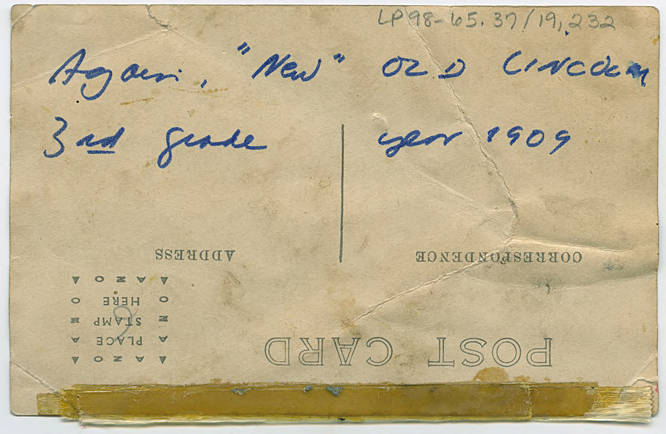 LP98-65.37/19,232
Again, "New" OLD LINCOLN
3rd grade year 1909
POST CARD
CORRESPONDENCE ADDRESS
AZO
PLACE
STAMP
HERE
AZO